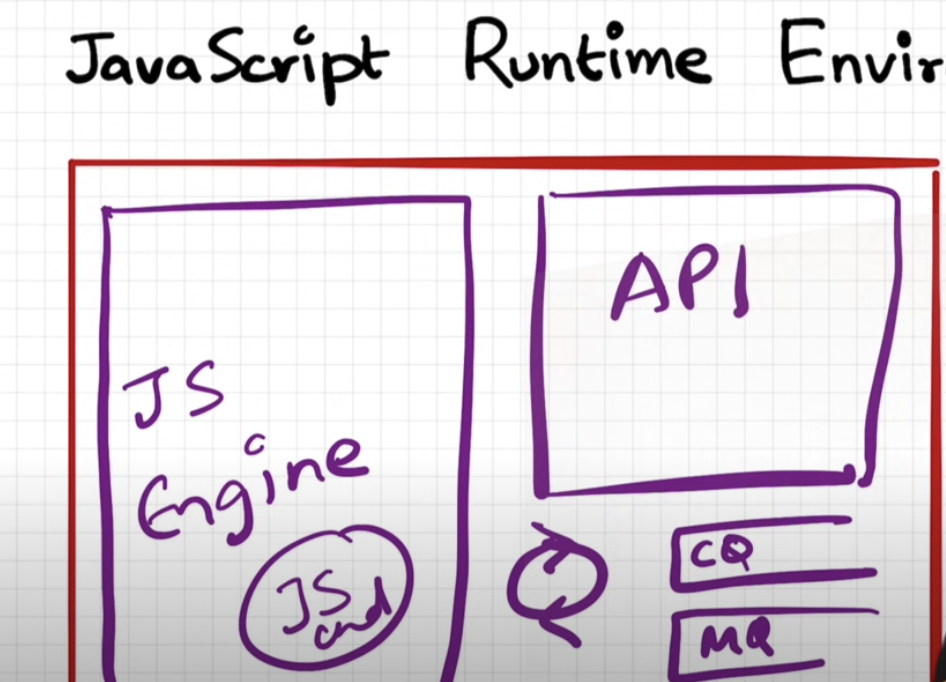 JavaScript Runtime Envir
API
JS
Engine
JS
CQ
MQ